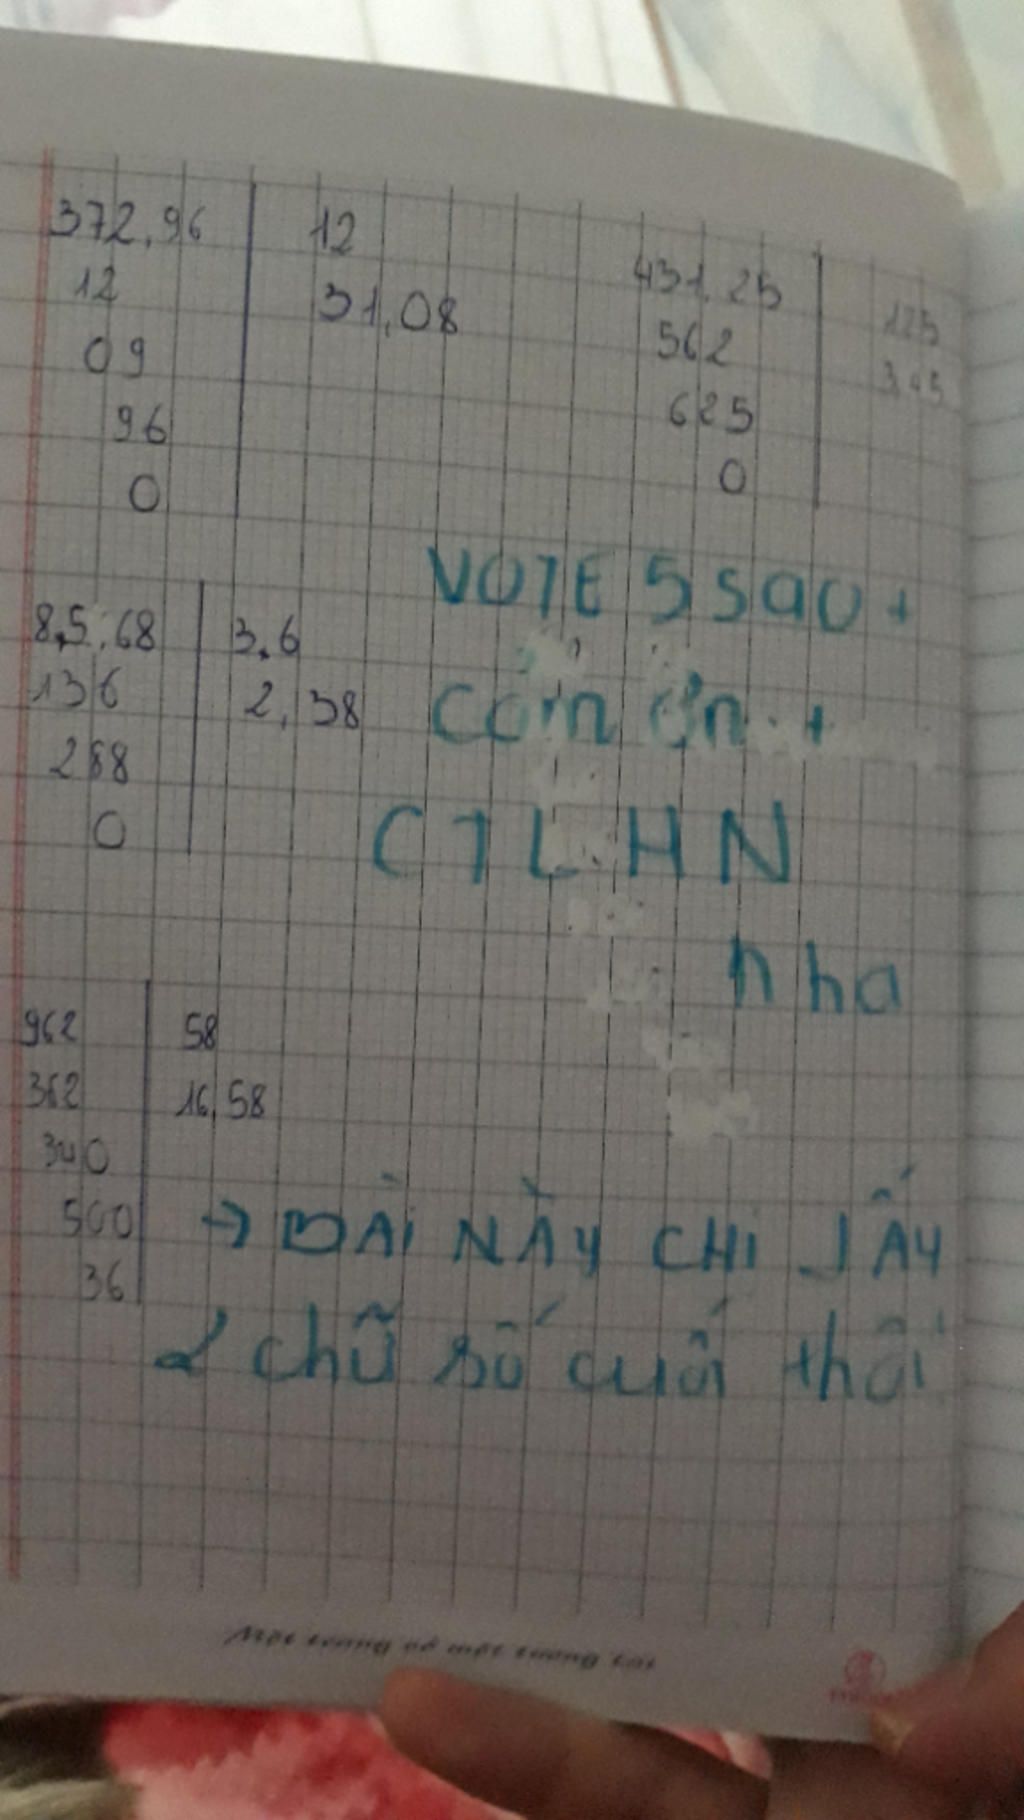 372,96 12
12 31,08
09
96
0
431,25 125
562 3,45
625
0
8,5,68 3,6
136 2,38
288
0
VOTE 5 SAO +
cảm ơn +
CTLHN
nha
962 58
362 16,58
340
500
36
→ BÀI NÀY CHỈ LẤY
2 chữ số cuối thôi